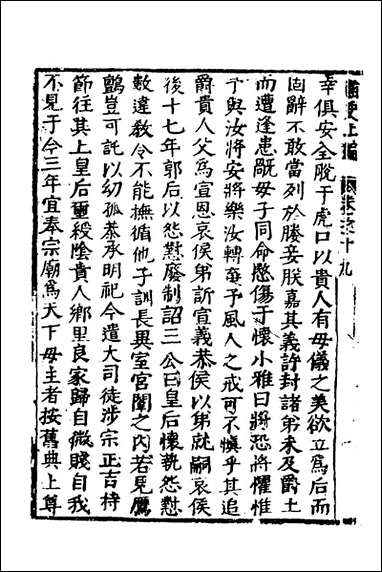 幸俱安全脫于虎口以貴人有母儀之美欲立爲后而
固辭不敢當列於媵妾朕嘉其義許封諸弟未及爵土
而遭逢患厄母子同命愍傷于懷小雅曰將恐將懼惟
予與汝將安將樂汝轉棄予風人之戒可不慎乎其追
爵貴人父爲宣恩哀侯弟訢宣義恭侯以弟就嗣哀侯
後十七年郭后以怨懟廢制詔三公曰皇后懷執怨懟
數違敎令不能撫循他子訓長異室宮闈之內若見鷹
鸇豈可託以幼孤恭承明祀今遣大司徒涉宗正吉持
節往其上皇后璽綬陰貴人鄉里良家歸自微賤自我
不見于今三年宜奉宗廟爲天下母主者按舊典上尊